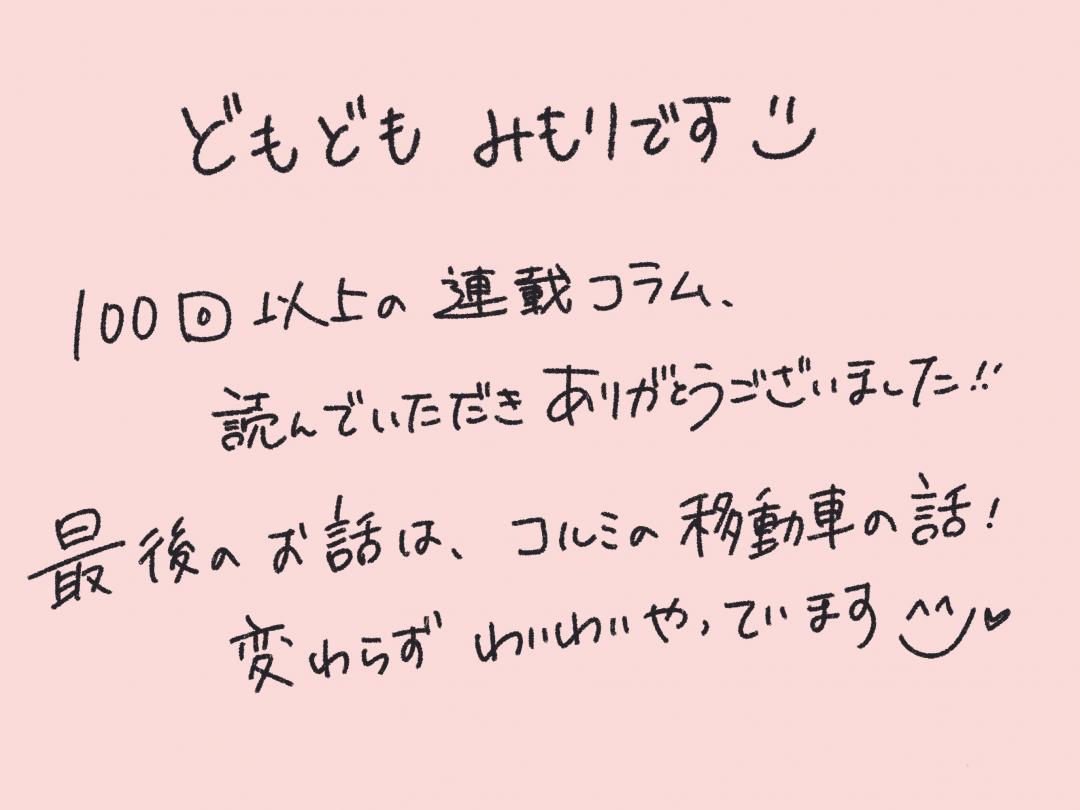 どもども みもりです
100回以上の連載コラム、
読んでいただきありがとうございました!!
最後のお話は、コルミの移動車の話!
変わらずわいわいやっています